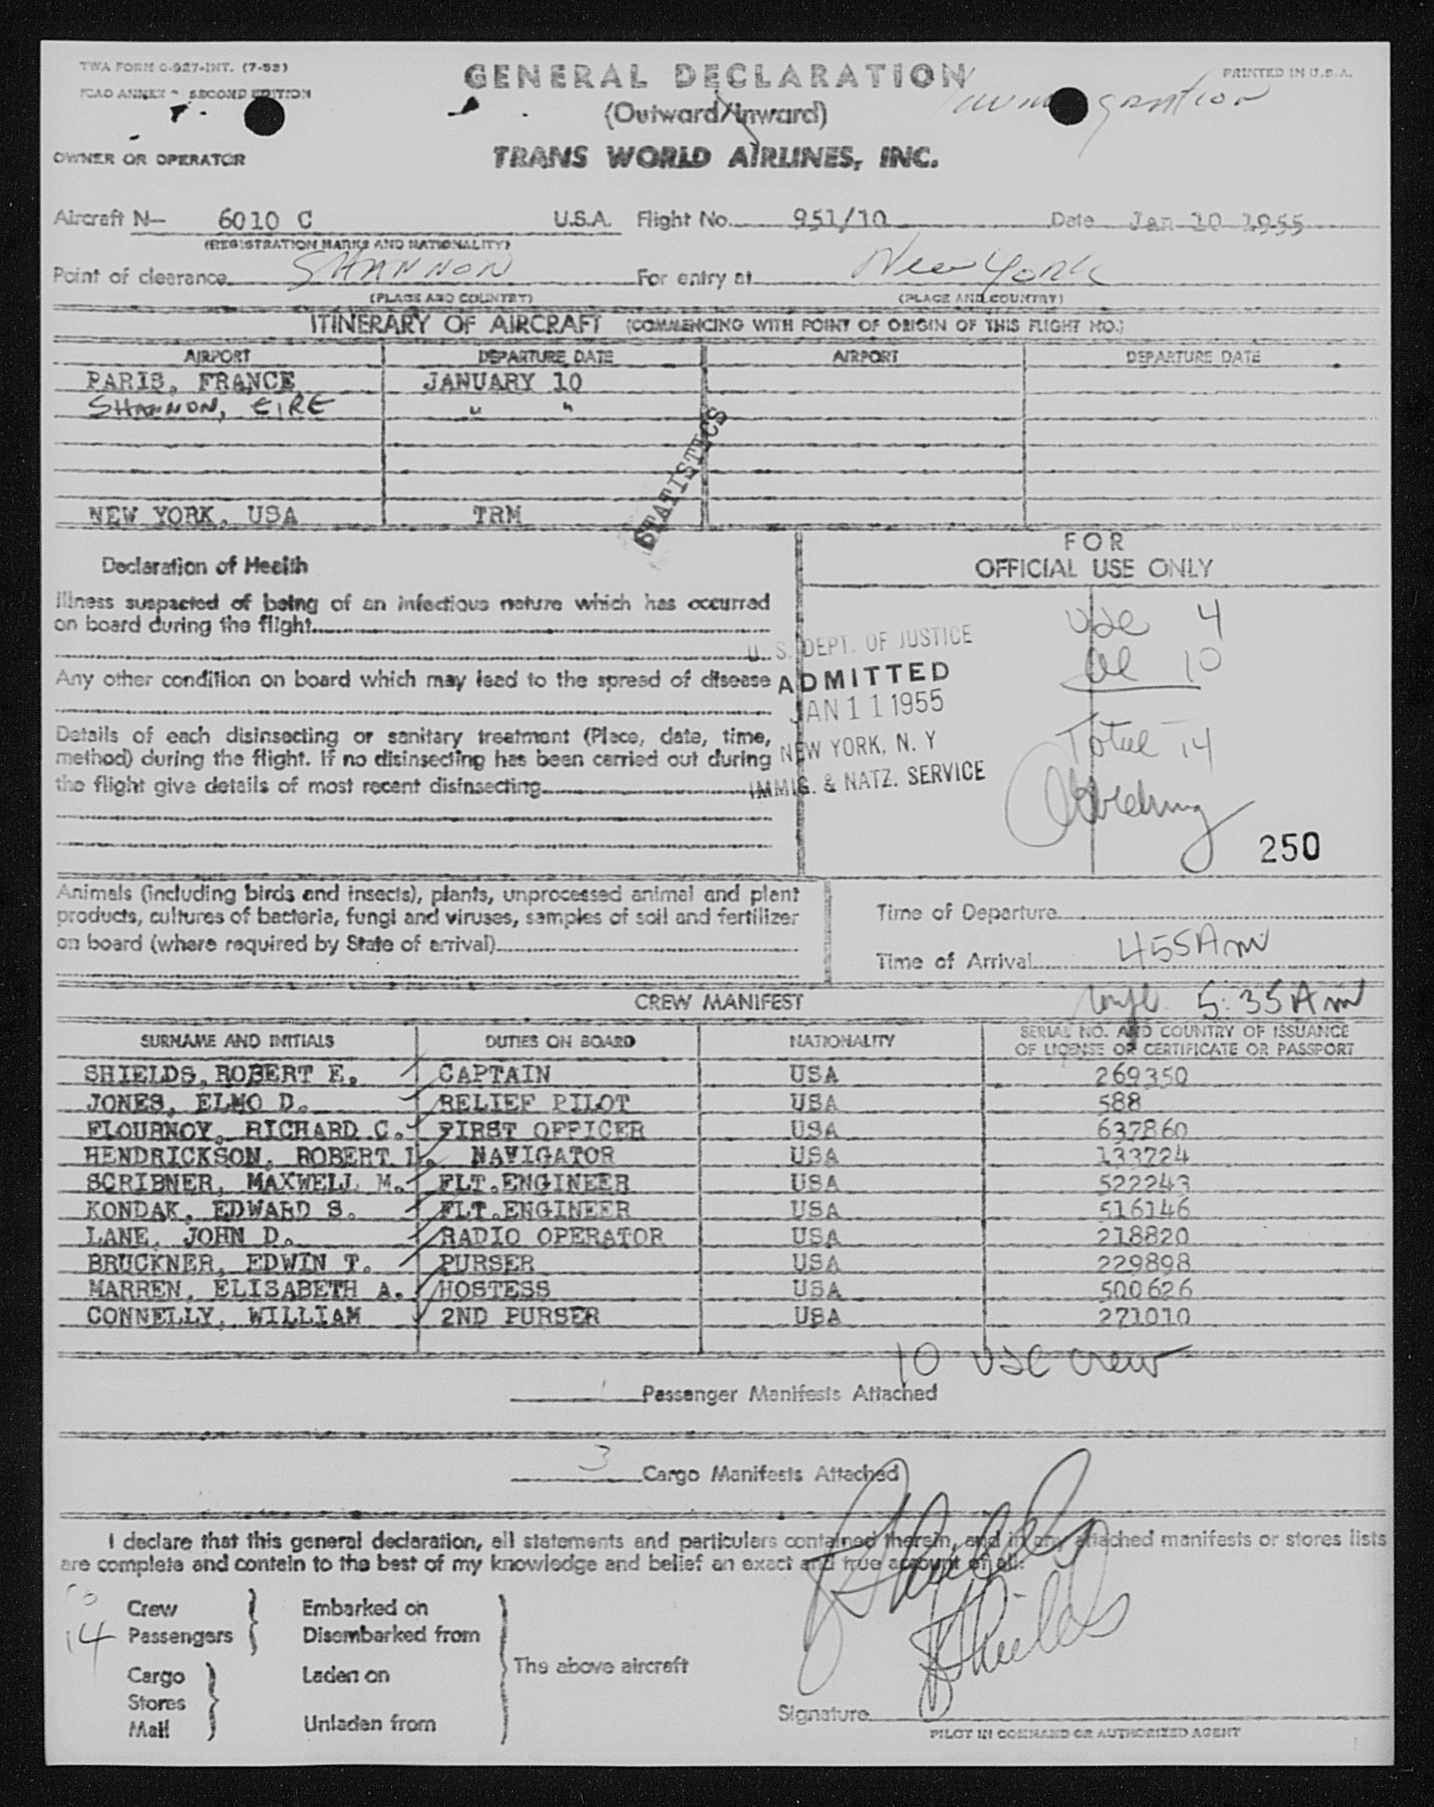 TWA FORM O-927-INT. (7-52)
GENERAL DECLARATION
PRINTED IN U.S.A.
ICAO ANNEX SECOND EDITION
immigration
(Outward/Inward)
OWNER OR OPERATOR
TRANS WORLD AIRLINES, INC.
Aircraft N— 6010 C U.S.A. Flight No. 951/10 Date Jan 10 1955
(REGISTRATION MARKS AND NATIONALITY)
Point of clearance SHANNON For entry at New York
(PLACE AND COUNTRY) (PLACE AND COUNTRY)
ITINERARY OF AIRCRAFT (COMMENCING WITH POINT OF ORIGIN OF THIS FLIGHT NO.)
AIRPORT DEPARTURE DATE AIRPORT DEPARTURE DATE
PARIS, FRANCE JANUARY 10
SHANNON, EIRE " "
STATISTICS
NEW YORK, USA TRM
Declaration of Health
Illness suspected of being of an infectious nature which has occurred
on board during the flight
Any other condition on board which may lead to the spread of disease
Details of each disinsecting or sanitary treatment (Place, date, time,
method) during the flight. If no disinsecting has been carried out during
the flight give details of most recent disinsecting
FOR
OFFICIAL USE ONLY
U. S. DEPT. OF JUSTICE
ADMITTED
JAN 11 1955
NEW YORK, N. Y
IMMIG. & NATZ. SERVICE
USC 4
al 10
Total 14
250
Animals (including birds and insects), plants, unprocessed animal and plant
products, cultures of bacteria, fungi and viruses, samples of soil and fertilizer
on board (where required by State of arrival)
Time of Departure
Time of Arrival 455 Am
5:35 Am
CREW MANIFEST
SURNAME AND INITIALS DUTIES ON BOARD NATIONALITY SERIAL NO. AND COUNTRY OF ISSUANCE
OF LICENSE OR CERTIFICATE OR PASSPORT
SHIELDS, ROBERT E. CAPTAIN USA 269350
JONES, ELMO D. RELIEF PILOT USA 588
FLOURNOY, RICHARD C. FIRST OFFICER USA 637860
HENDRICKSON, ROBERT L. NAVIGATOR USA 133724
SCRIBNER, MAXWELL M. FLT.ENGINEER USA 522243
KONDAK, EDWARD S. FLT.ENGINEER USA 516146
LANE, JOHN D. RADIO OPERATOR USA 218820
BRUCKNER, EDWIN T. PURSER USA 229898
MARREN, ELISABETH A. HOSTESS USA 500626
CONNELLY, WILLIAM 2ND PURSER USA 271010
10 USC crew
1 Passenger Manifests Attached
3 Cargo Manifests Attached
I declare that this general declaration, all statements and particulars contained therein, and in any attached manifests or stores lists
are complete and contain to the best of my knowledge and belief an exact and true account of all:
Crew Embarked on
14 Passengers Disembarked from
The above aircraft
Cargo Laden on
Stores
Mail Unladen from
Shields
Signature
PILOT IN COMMAND OR AUTHORIZED AGENT